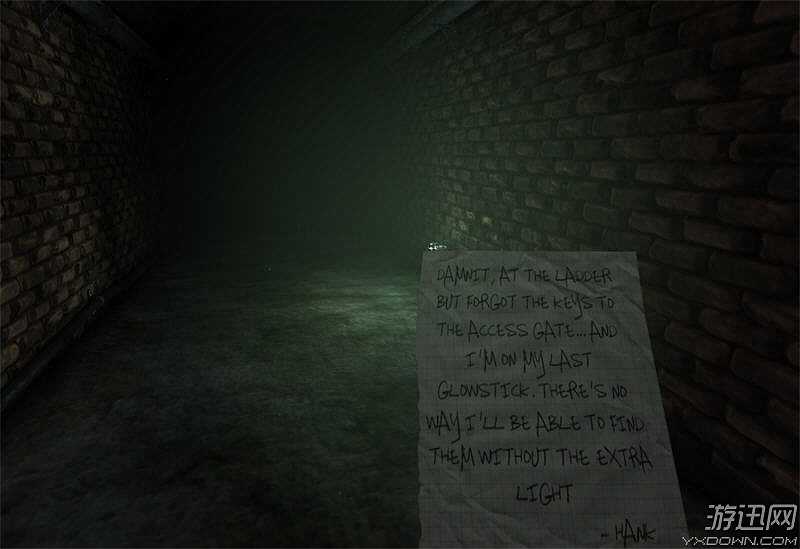 DAMNIT, AT THE LADDER
BUT FORGOT THE KEYS TO
THE ACCESS GATE...AND
I'M ON MY LAST
GLOWSTICK. THERE'S NO
WAY I'LL BE ABLE TO FIND
THEM WITHOUT THE EXTRA
LIGHT
- HANK
游迅网
YXDOWN.COM